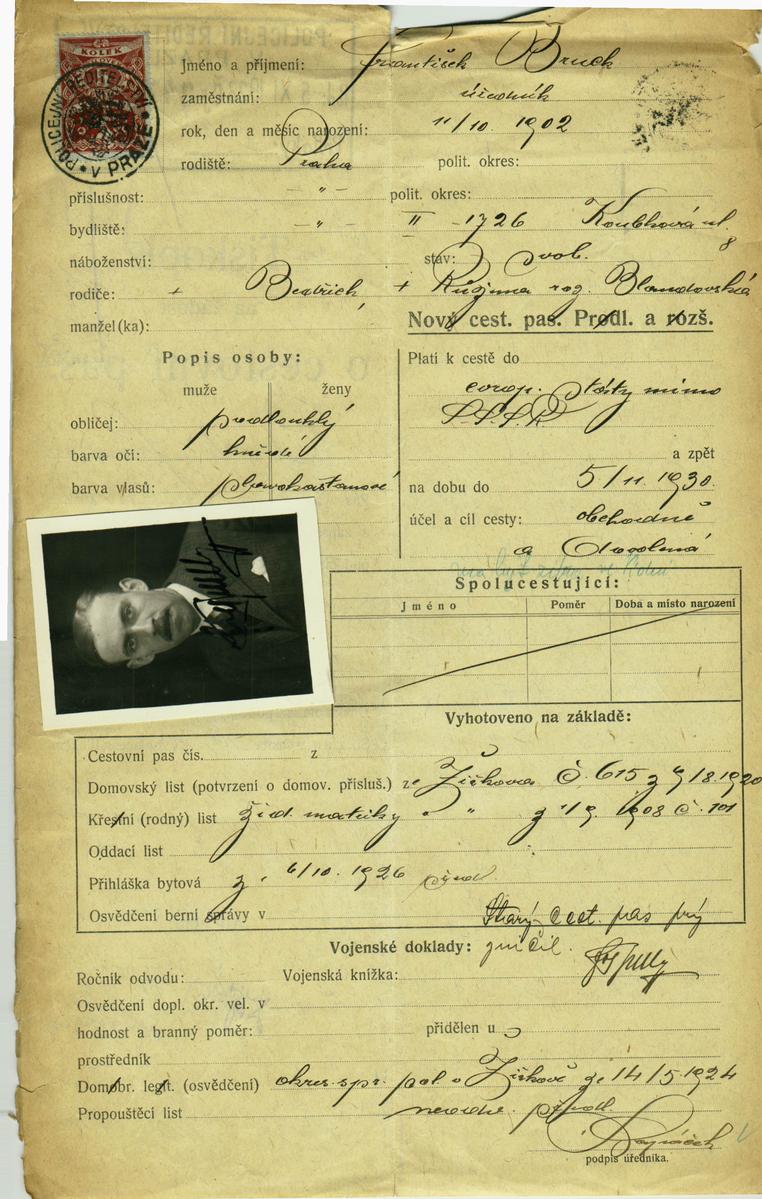 KOLEK
POLICEJNÍ ŘEDITELSTVÍ V PRAZE
Jméno a příjmení: František Bruck
zaměstnání: úředník
rok, den a měsíc narození: 11/10. 1902
rodiště: Praha polit. okres:
příslušnost: – " – polit. okres:
bydliště: – " II – 1726 Koubková ul. 8
náboženství: stav: svob.
rodiče: + Bedřich, + Růžena roz. Blandovská
manžel(ka):
Nový cest. pas. Prodl. a rozš.
Popis osoby:
muže ženy
obličej: prodlouhlý
barva očí: hnědé
barva vlasů:
Platí k cestě do
evrop. státy mimo
S.S.S.R
a zpět
na dobu do 5/11. 1930.
účel a cíl cesty: obchodně
a
Spolucestující:
Jméno Poměr Doba a místo narození
Vyhotoveno na základě:
Cestovní pas čís. z
Domovský list (potvrzení o domov. přísluš.) z Žižkova č. 615 z 9/8.1920
Křestní (rodný) list žid. matriky " z 1/9. 1908 č. 101
Oddací list
Přihláška bytová z 6/10. 1926
Osvědčení berní správy v
Starý cest. pas prý
zničil.
Vojenské doklady:
Ročník odvodu: Vojenská knížka:
Osvědčení dopl. okr. vel. v
hodnost a branný poměr: přidělen u
prostředník
Domobr. legit. (osvědčení) okres. spr. pol. v Žižkově ze 14/5.1924
Propouštěcí list
podpis úředníka.